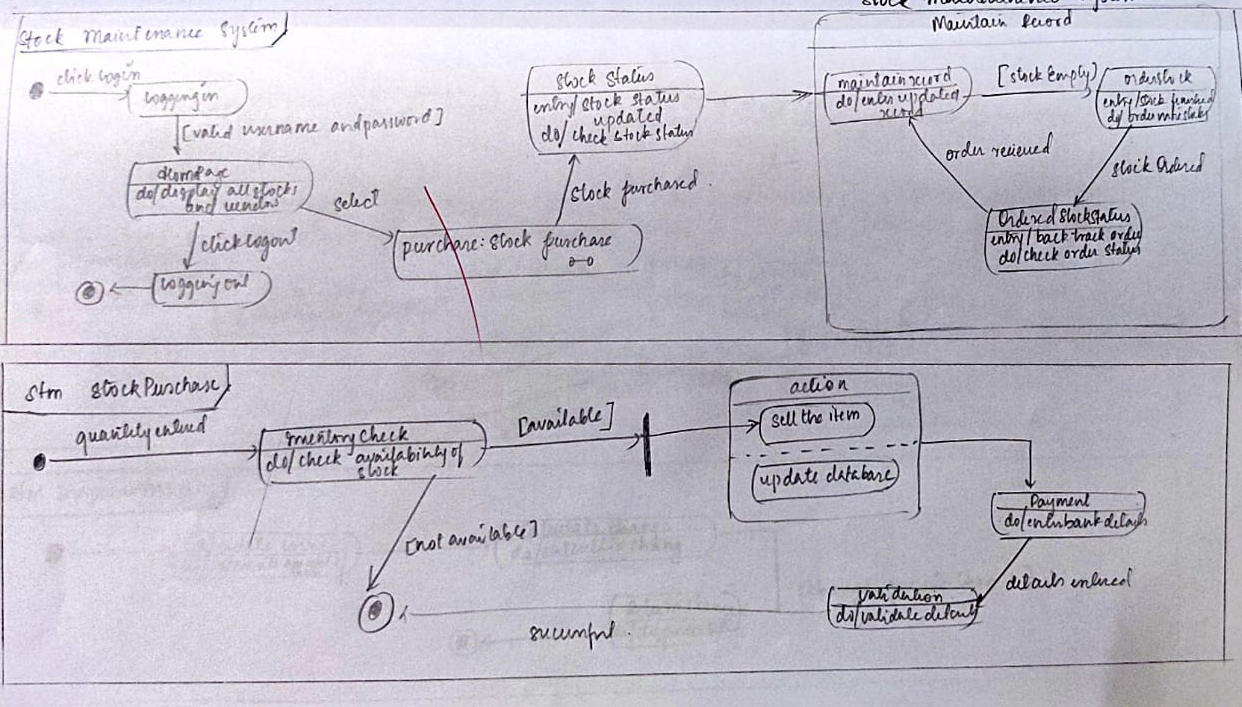 Stock Maintenance System
Maintain Record
click login
logging in
[valid username and password]
Homepage
do/display all stocks
and vendors
select
click logout
logging out
purchase: Stock purchase
stock purchased
Stock Status
entry/ stock status
updated
do/ check stock status
maintain record
do/enter updated
record
[stock Empty]
order stock
entry/stock finished
do/ order
stock ordered
Ordered Stock status
entry/ back track order
do/check order status
order recieved
Stm Stock Purchase
quantity entered
Inventory Check
do/check availability of
stock
[available]
[not available]
action
sell the item
update database
Payment
do/enter bank details
details entered
validation
do/validate details